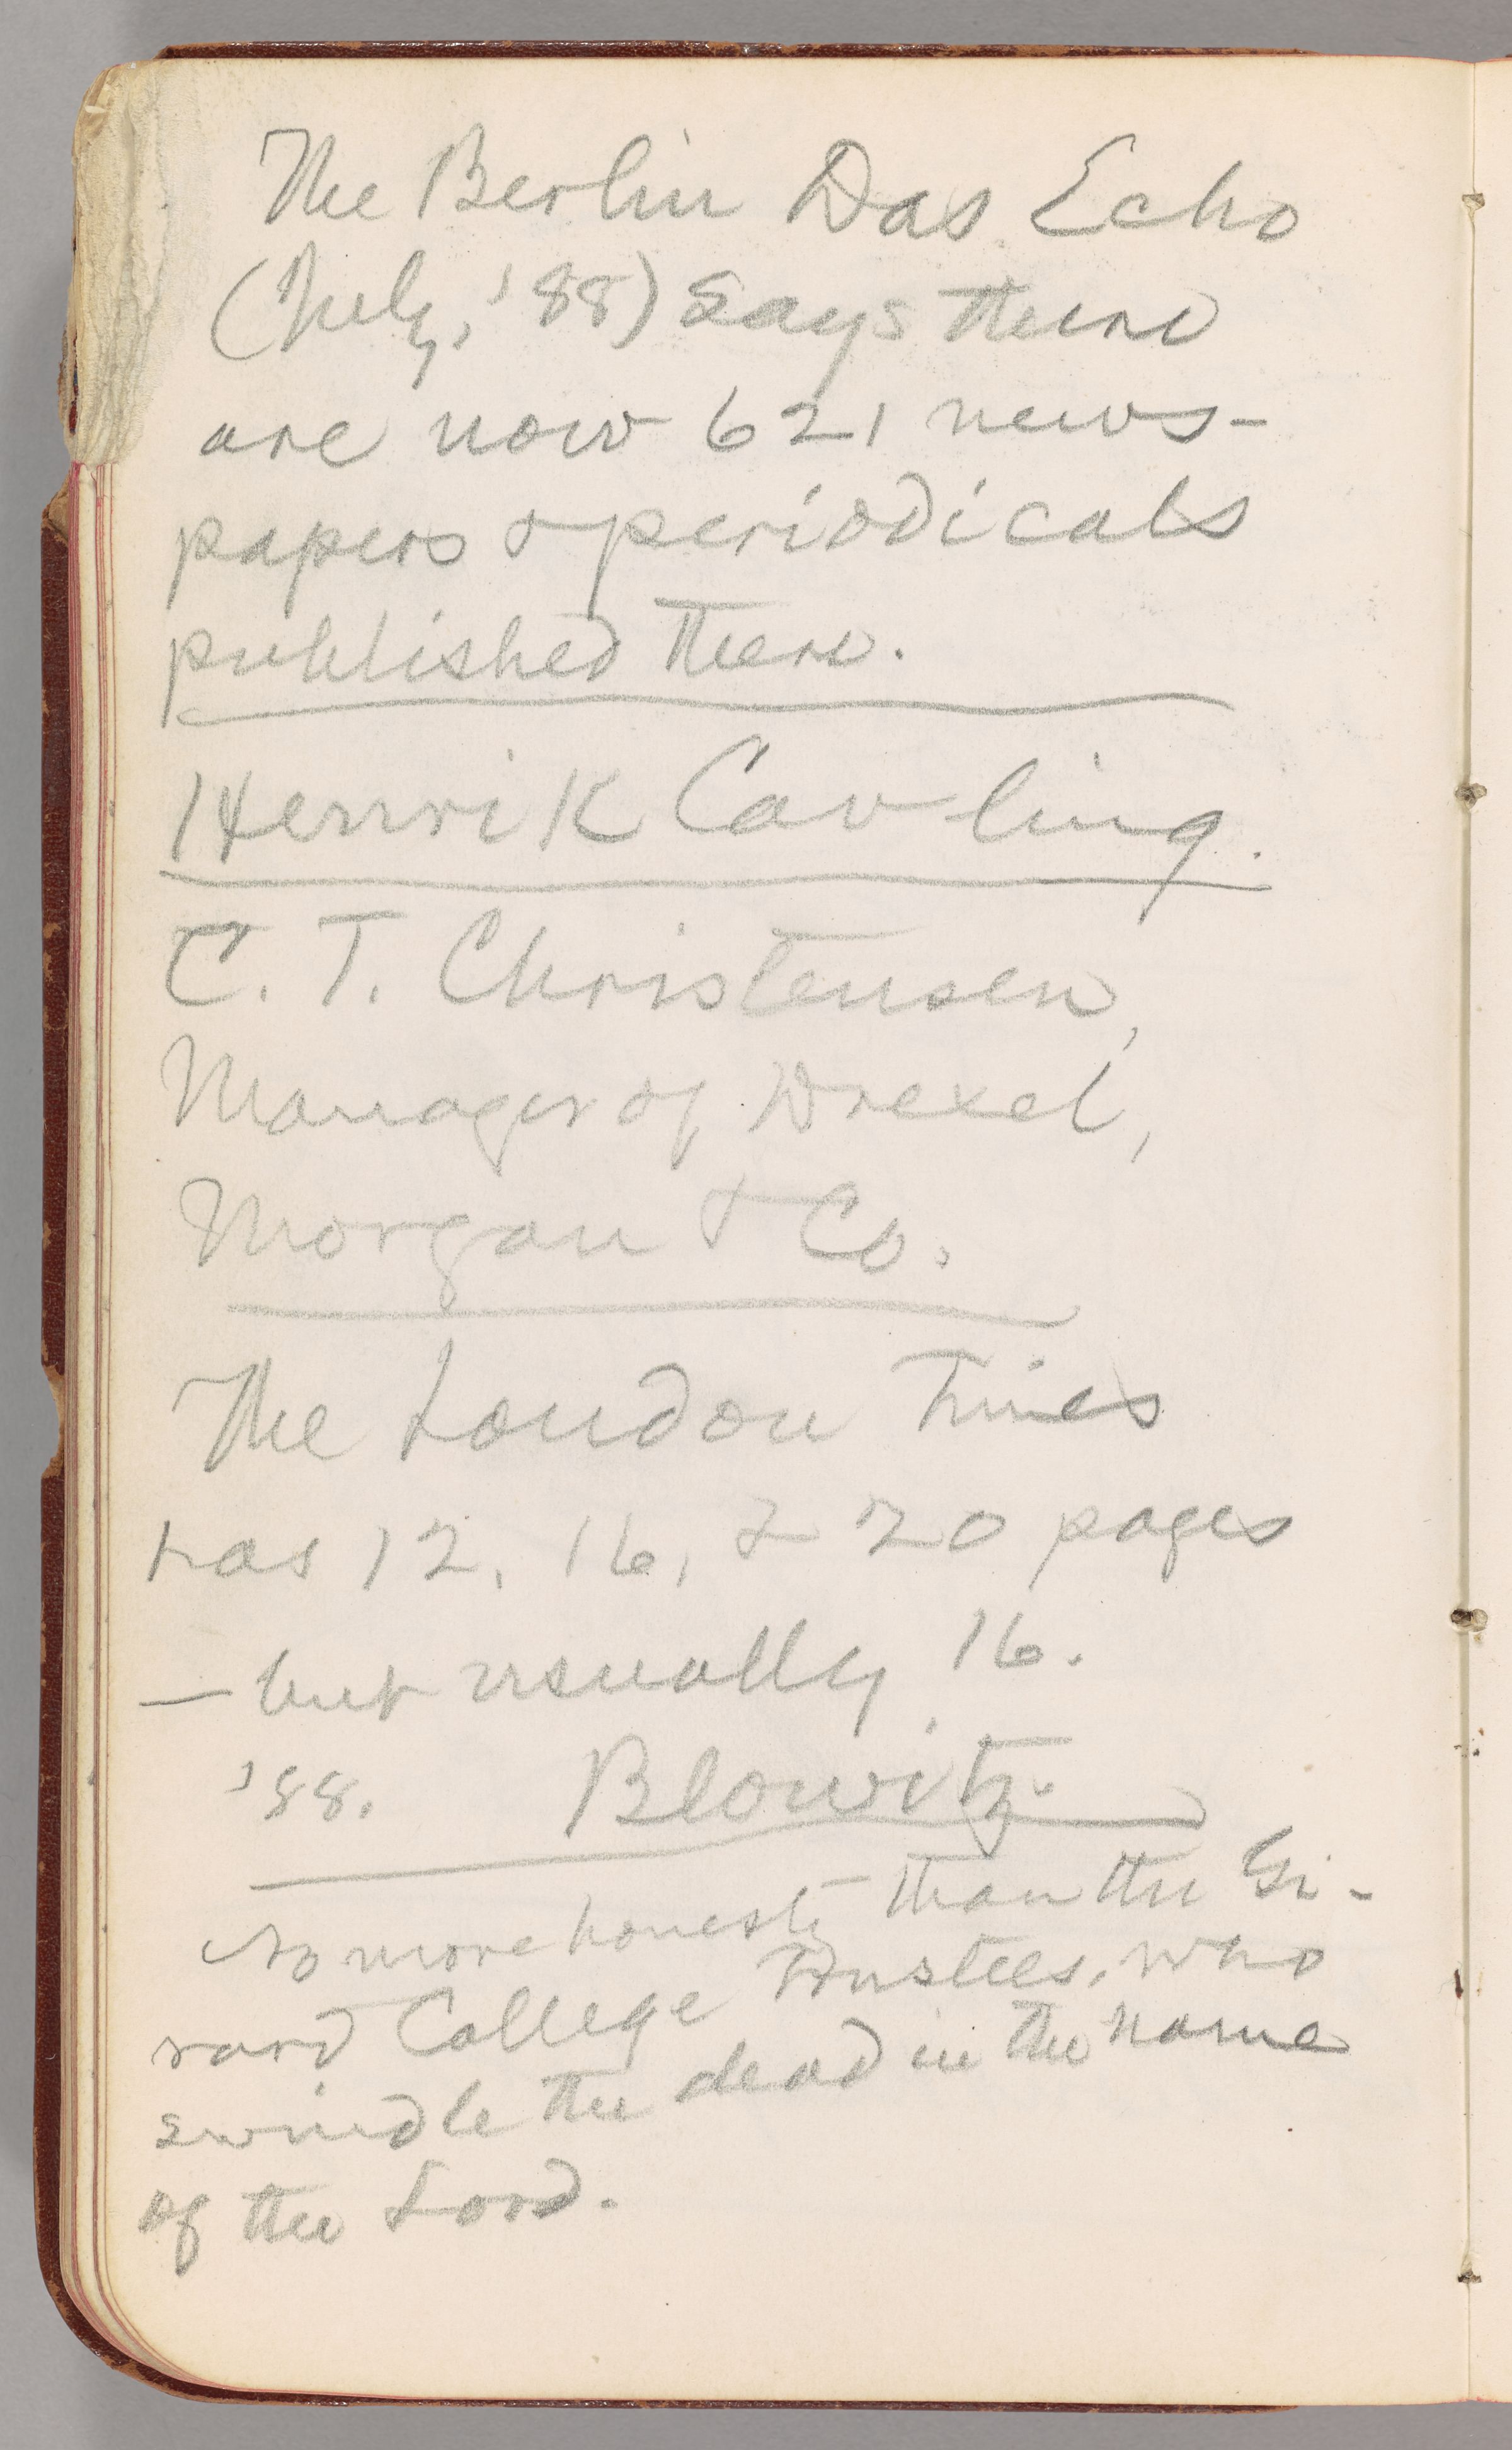 The Berlin Das Echo
(July, '88) says there
are now 621 news-
papers & periodicals
published there.
Henrik Cavling.
C. T. Christensen,
Manager of Drexel,
Morgan & Co.
The London Times
has 12, 16, & 20 pages
— but usually 16.
'88. Blowitz.
No more honesty than the Gi-
rard College Trustees, who
swindle the dead in the name
of the Lord.